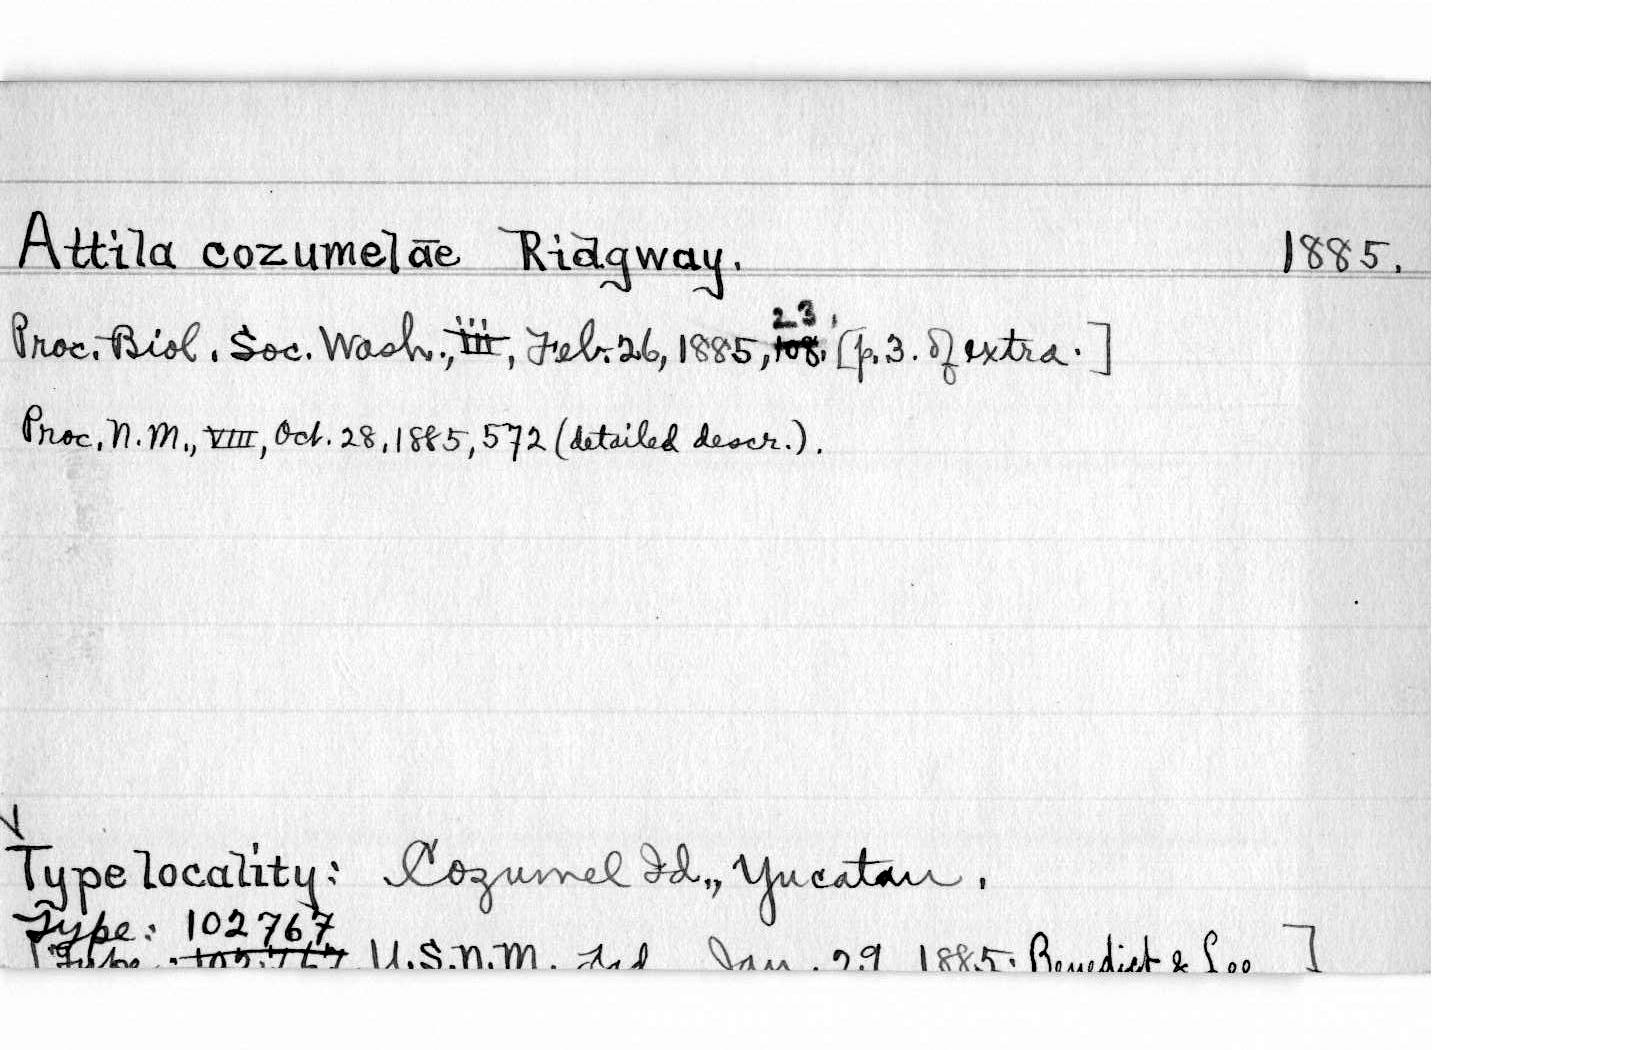 Attila cozumelae Ridgway. 1885.
Proc. Biol. Soc. Wash., iii, Feb. 26, 1885, 108. 23, [p. 3. of extra.]
Proc. N. M., VIII, Oct. 28, 1885, 572 (detailed descr.).
Type locality: Cozumel Id., Yucatan.
Type: 102767
[Type: 102.767 U.S.N.M. Jan. 29 1885. Benedict & Lee ]